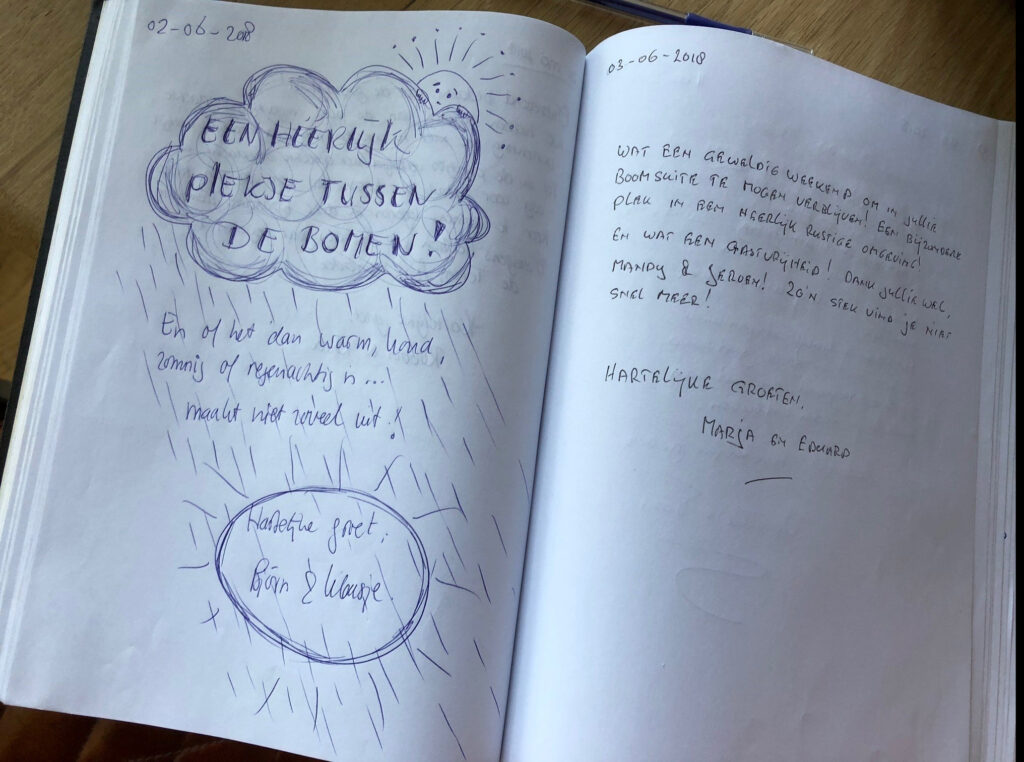 02-06-2018
EEN HEERLIJK
PLEKJE TUSSEN
DE BOMEN!
En of het dan warm, koud,
zonnig of regenachtig is...
maakt niet zoveel uit!
Hartelijke groet,
Björn & Klaasje.
03-06-2018
WAT EEN GEWELDIG WEEKEND OM IN JULLIE
BOOMSUITE TE MOGEN VERBLIJVEN! EEN BIJZONDERE
PLEK IN EEN HEERLIJK RUSTIGE OMGEVING!
EN WAT EEN GASTVRIJHEID! DANK JULLIE WEL,
MANDY & JEROEN! ZO'N STEK VIND JE NIET
SNEL MEER!
HARTELIJKE GROETEN,
MARJA EN EDUARD